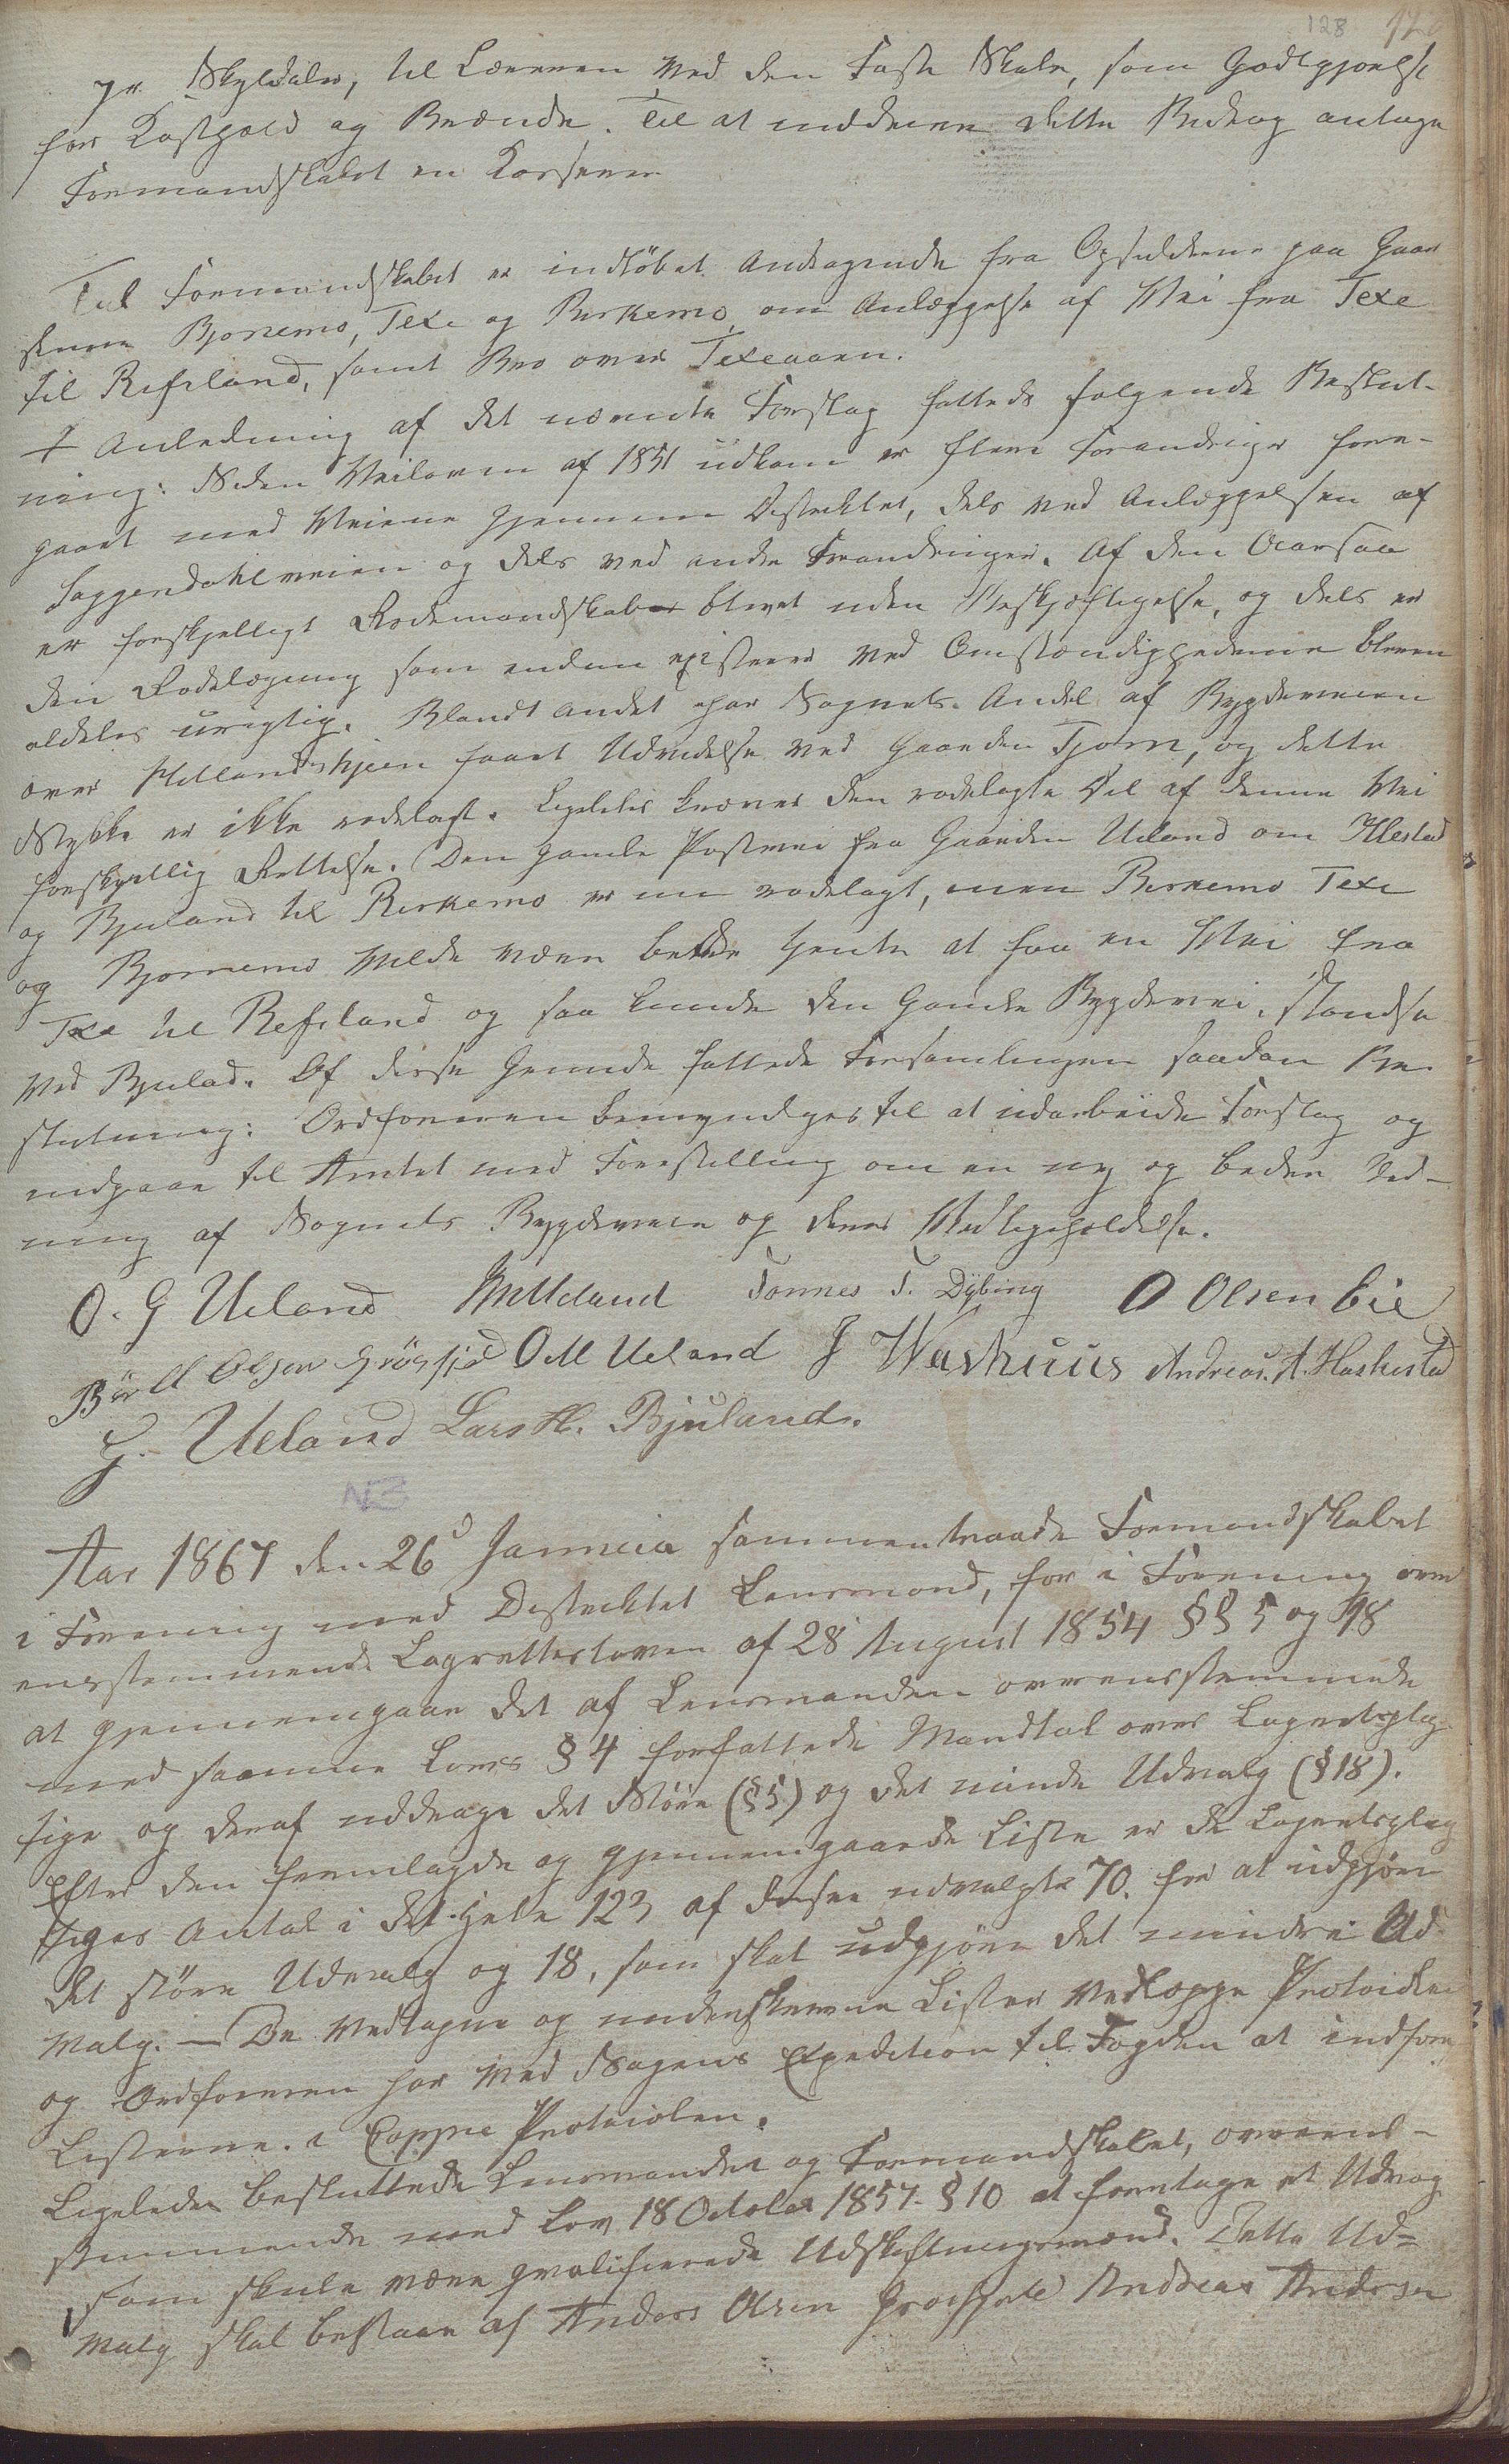 128
pr. Skyldaler, til Læreren ved den Faste Skole, som Godtgjørelse
for Kosthold og Brænde. Til at inddrive dette Bidrag antage
Formandskabet en Kasserer
Til Formandskabet er indløbet Andragende fra Opsidderne paa Gaar
dene Bjornemo, Texe og Birkemo, om Anlæggelse af Vei fra Texe
til Refsland, samt Bro over Texeaaen.
I Anledning af det nævnte Forslag fattede følgende Beslut-
ning: Siden Veiloven af 1851 udkom er flere Forandringer fore-
gaaet med Veiene gjennem Distriktet, dels ved Anlæggelsen af
Soggendahlveien og dels ved andre Forandringer. Af den Aarsag
er forskjelligt Rodemandskab blevet uden Beskjæftigelse, og dels er
den Rodelægning som endnu existerer ved Omstændighederne bleven
aldeles urigtig. Blandt andet har Sognets Andel af Bygdeveien
over Hellandsheien faaet Udvidelse ved Gaarden Tjorn, og dette
Stykke er ikke rodelagt. Ligeledes kræver den rodelagte Del af denne Vei
forskjellig Rettelse. Den gamle Postvei fra Gaarden Ueland om Ilestad
og Bjuland til Birkemo er nu rodelagt, men Birkemo Texe
og Bjornemo vilde være bedre tjente at faa en Vei fra
Texe til Refsland og saa kunde den Gamle Bygdevei standse
ved Bjulad. Af disse Grunde fattede Forsamlingen saadan Be-
slutning: Ordføreren bemyndiges til at udarbeide Forslag og
indgaae til Amtet med Forestilling om en ny og bedre Ind-
ning af Sognets Bygdeveie og deres Vedligeholdelse.
O. G Ueland Tonnes T. Dybing O Olsen Eie
Olsen O M Ueland J Washuus Andreas. A. Haskestad
G. Ueland Lars H. Bjuland.
NB
Aar 1867 den 26d Januar sammentraade Formandskabet
i Forening med Distriktet Lensmand, for i Forening over
ensstemmende Lagrettesloven af 28 August 1854 §§ 5 og 18
at gjennemgaae det af Lensmanden overensstemmende
med samme Lovs § 4 forfattede Mandtal over Lagretsplig-
tige og deraf uddrage det Större (§5) og det mindre Udvalg (§18).
Efter den fremlagde og gjennemgaaede Liste er de Lagretsplig
tiges Antal i det Hele 123 af disse udvalgte 70. for at udgjöre
det större Udvalg og 18, som skal udgjöre det mindre Ud-
valg. — De vedtagne og underskrevne Lister vedlægge Protocollen
og Ordføreren har ved Sagens Expedition til Fogden at indføre
Listerne i Copie Protocolen.
Ligeledes besluttede Lensmanden og Formandskabet, overens-
stemmende med Lov 18 October 1857 § 10 at foretage et Udvag
som skule være qvalificerede Udskiftningsmænd. Dette Ud=
valg skal bestaae af Anders Olsen Andreas Andersen